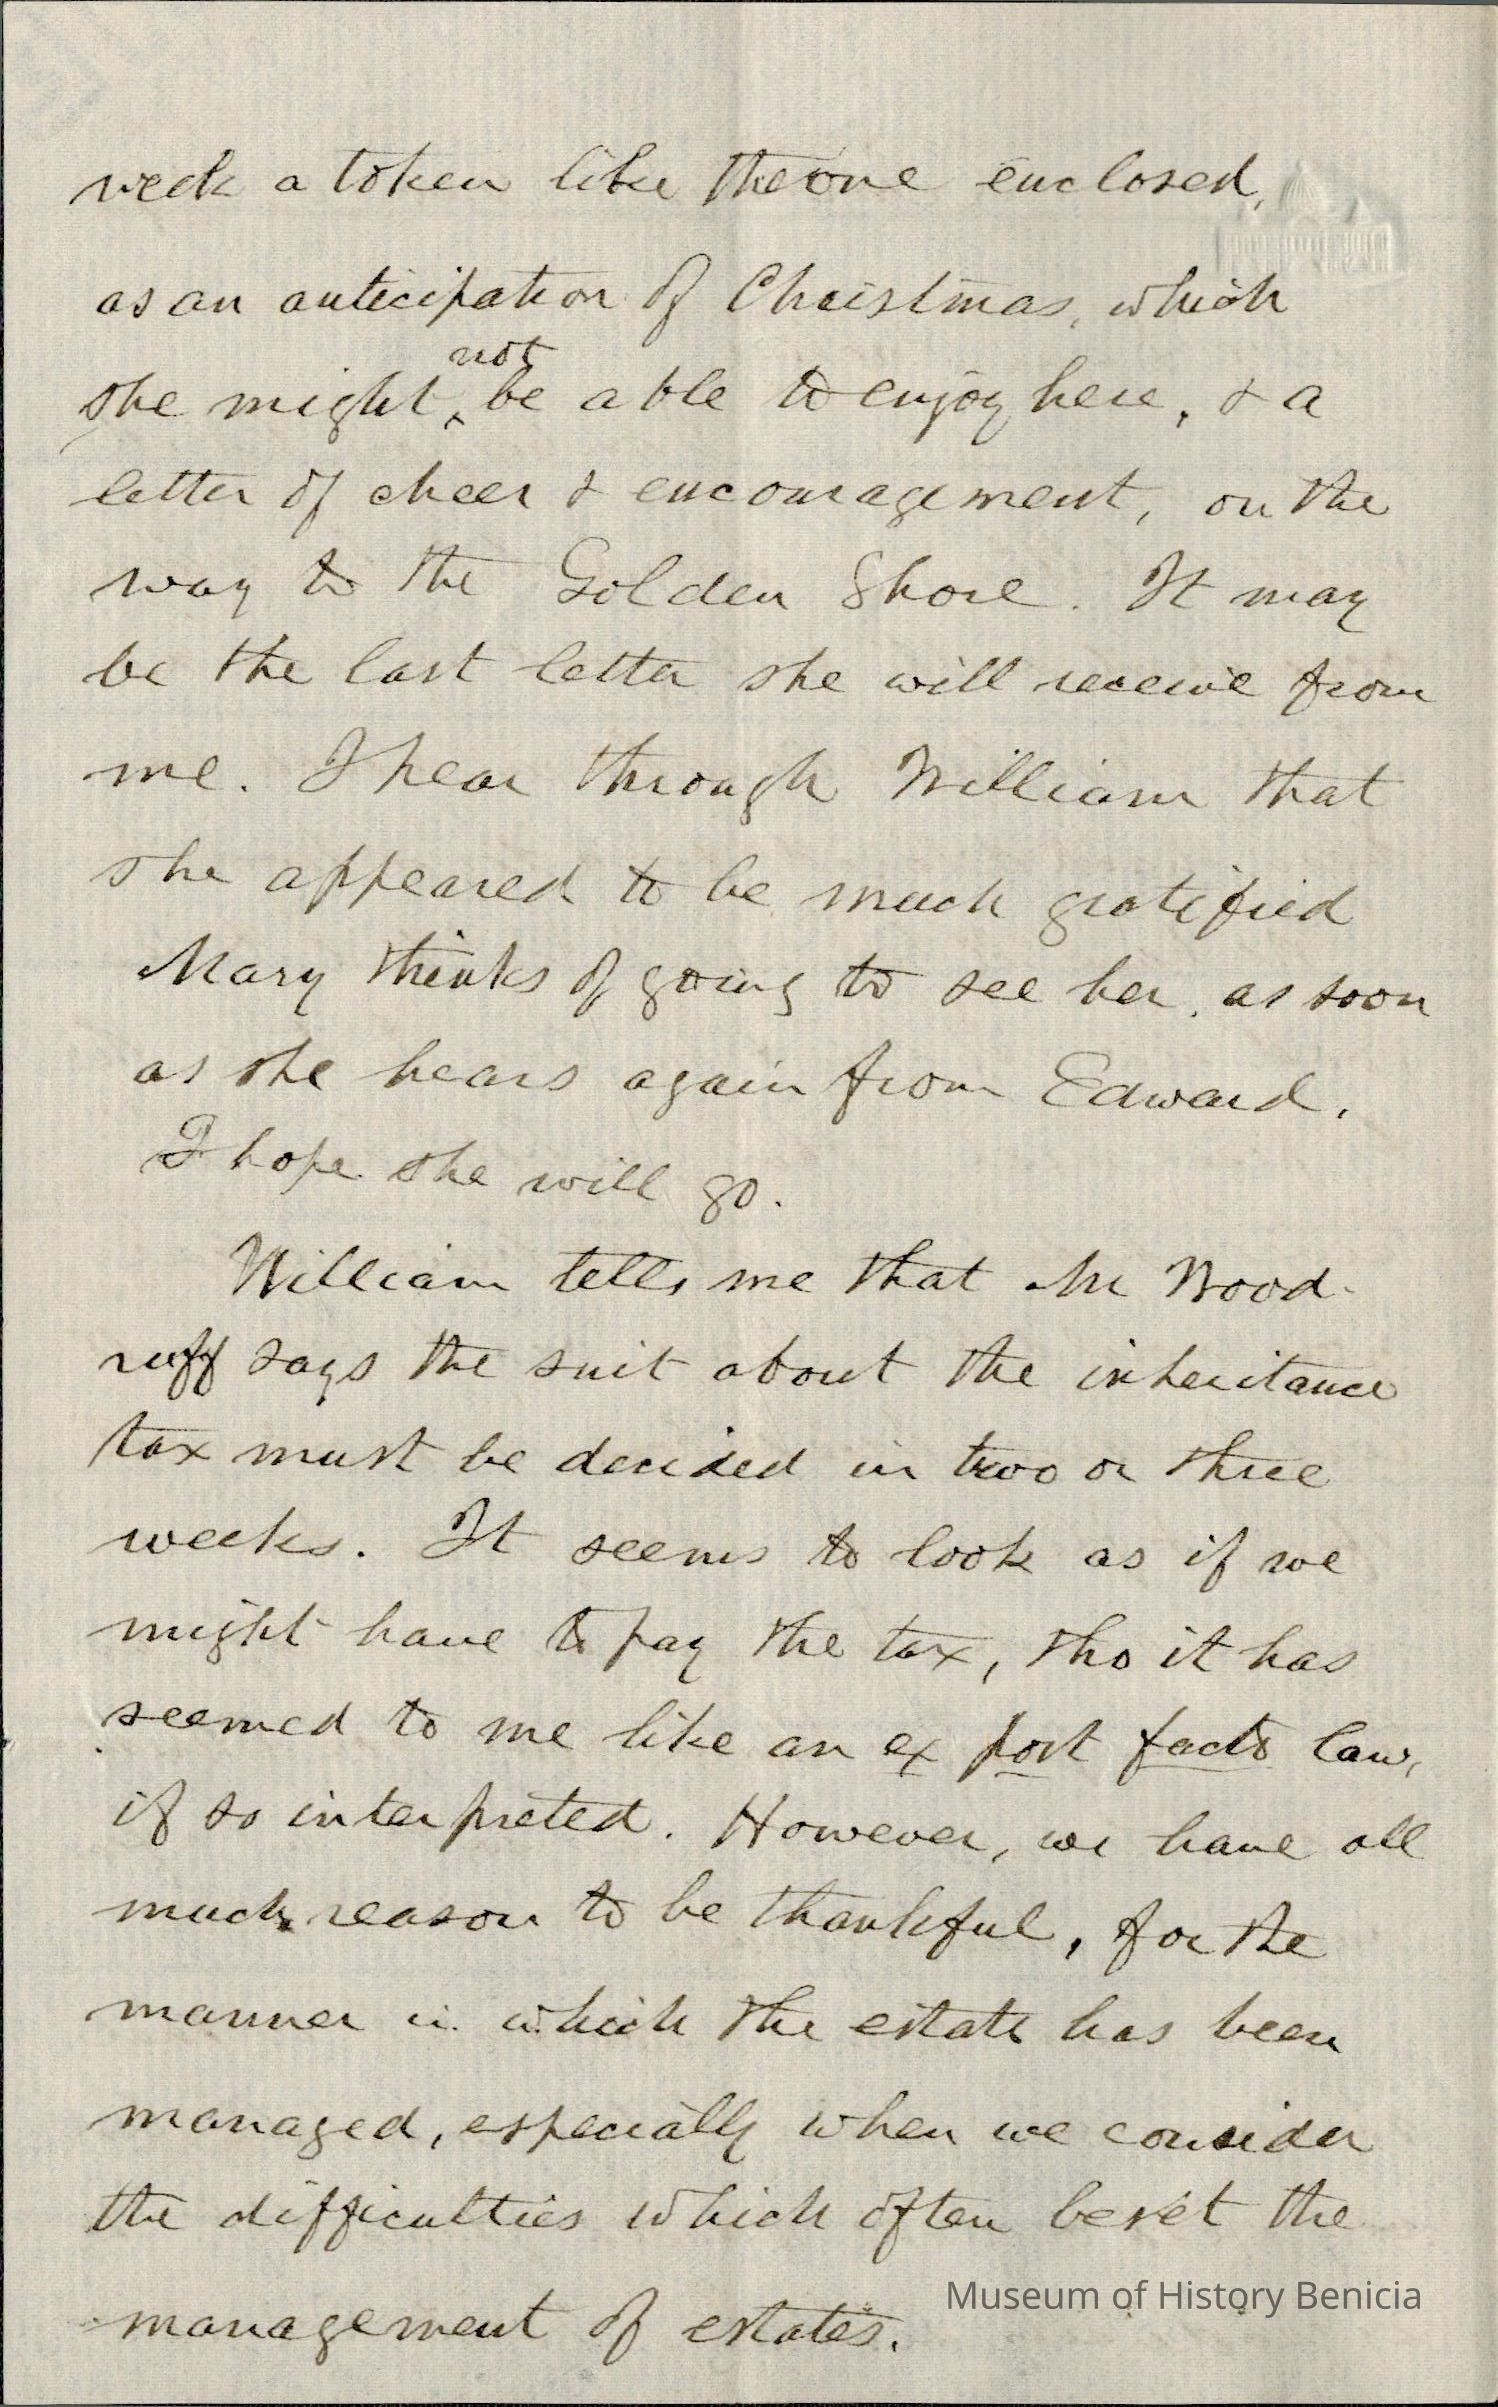 week a token like the one enclosed,
as an anticipation of Christmas, which
not
she might ‸ be able to enjoy here, & a
letter of cheer & encouragement, on the
way to the Golden Shore. It may
be the last letter she will receive from
me. I hear through William that
she appeared to be much gratified
Mary thinks of going to see her, as soon
as she hears again from Edward.
I hope she will go.
William tells me that Mr Wood-
ruff says the suit about the inheritance
tax must be decided in two or three
weeks. It seems to look as if we
might have to pay the tax, tho it has
seemed to me like an ex post facto law,
if so interpreted. However, we have all
much reason to be thankful, for the
manner in which the estate has been
managed, especially when we consider
the difficulties which often beset the
management of estates.
Museum of History Benicia